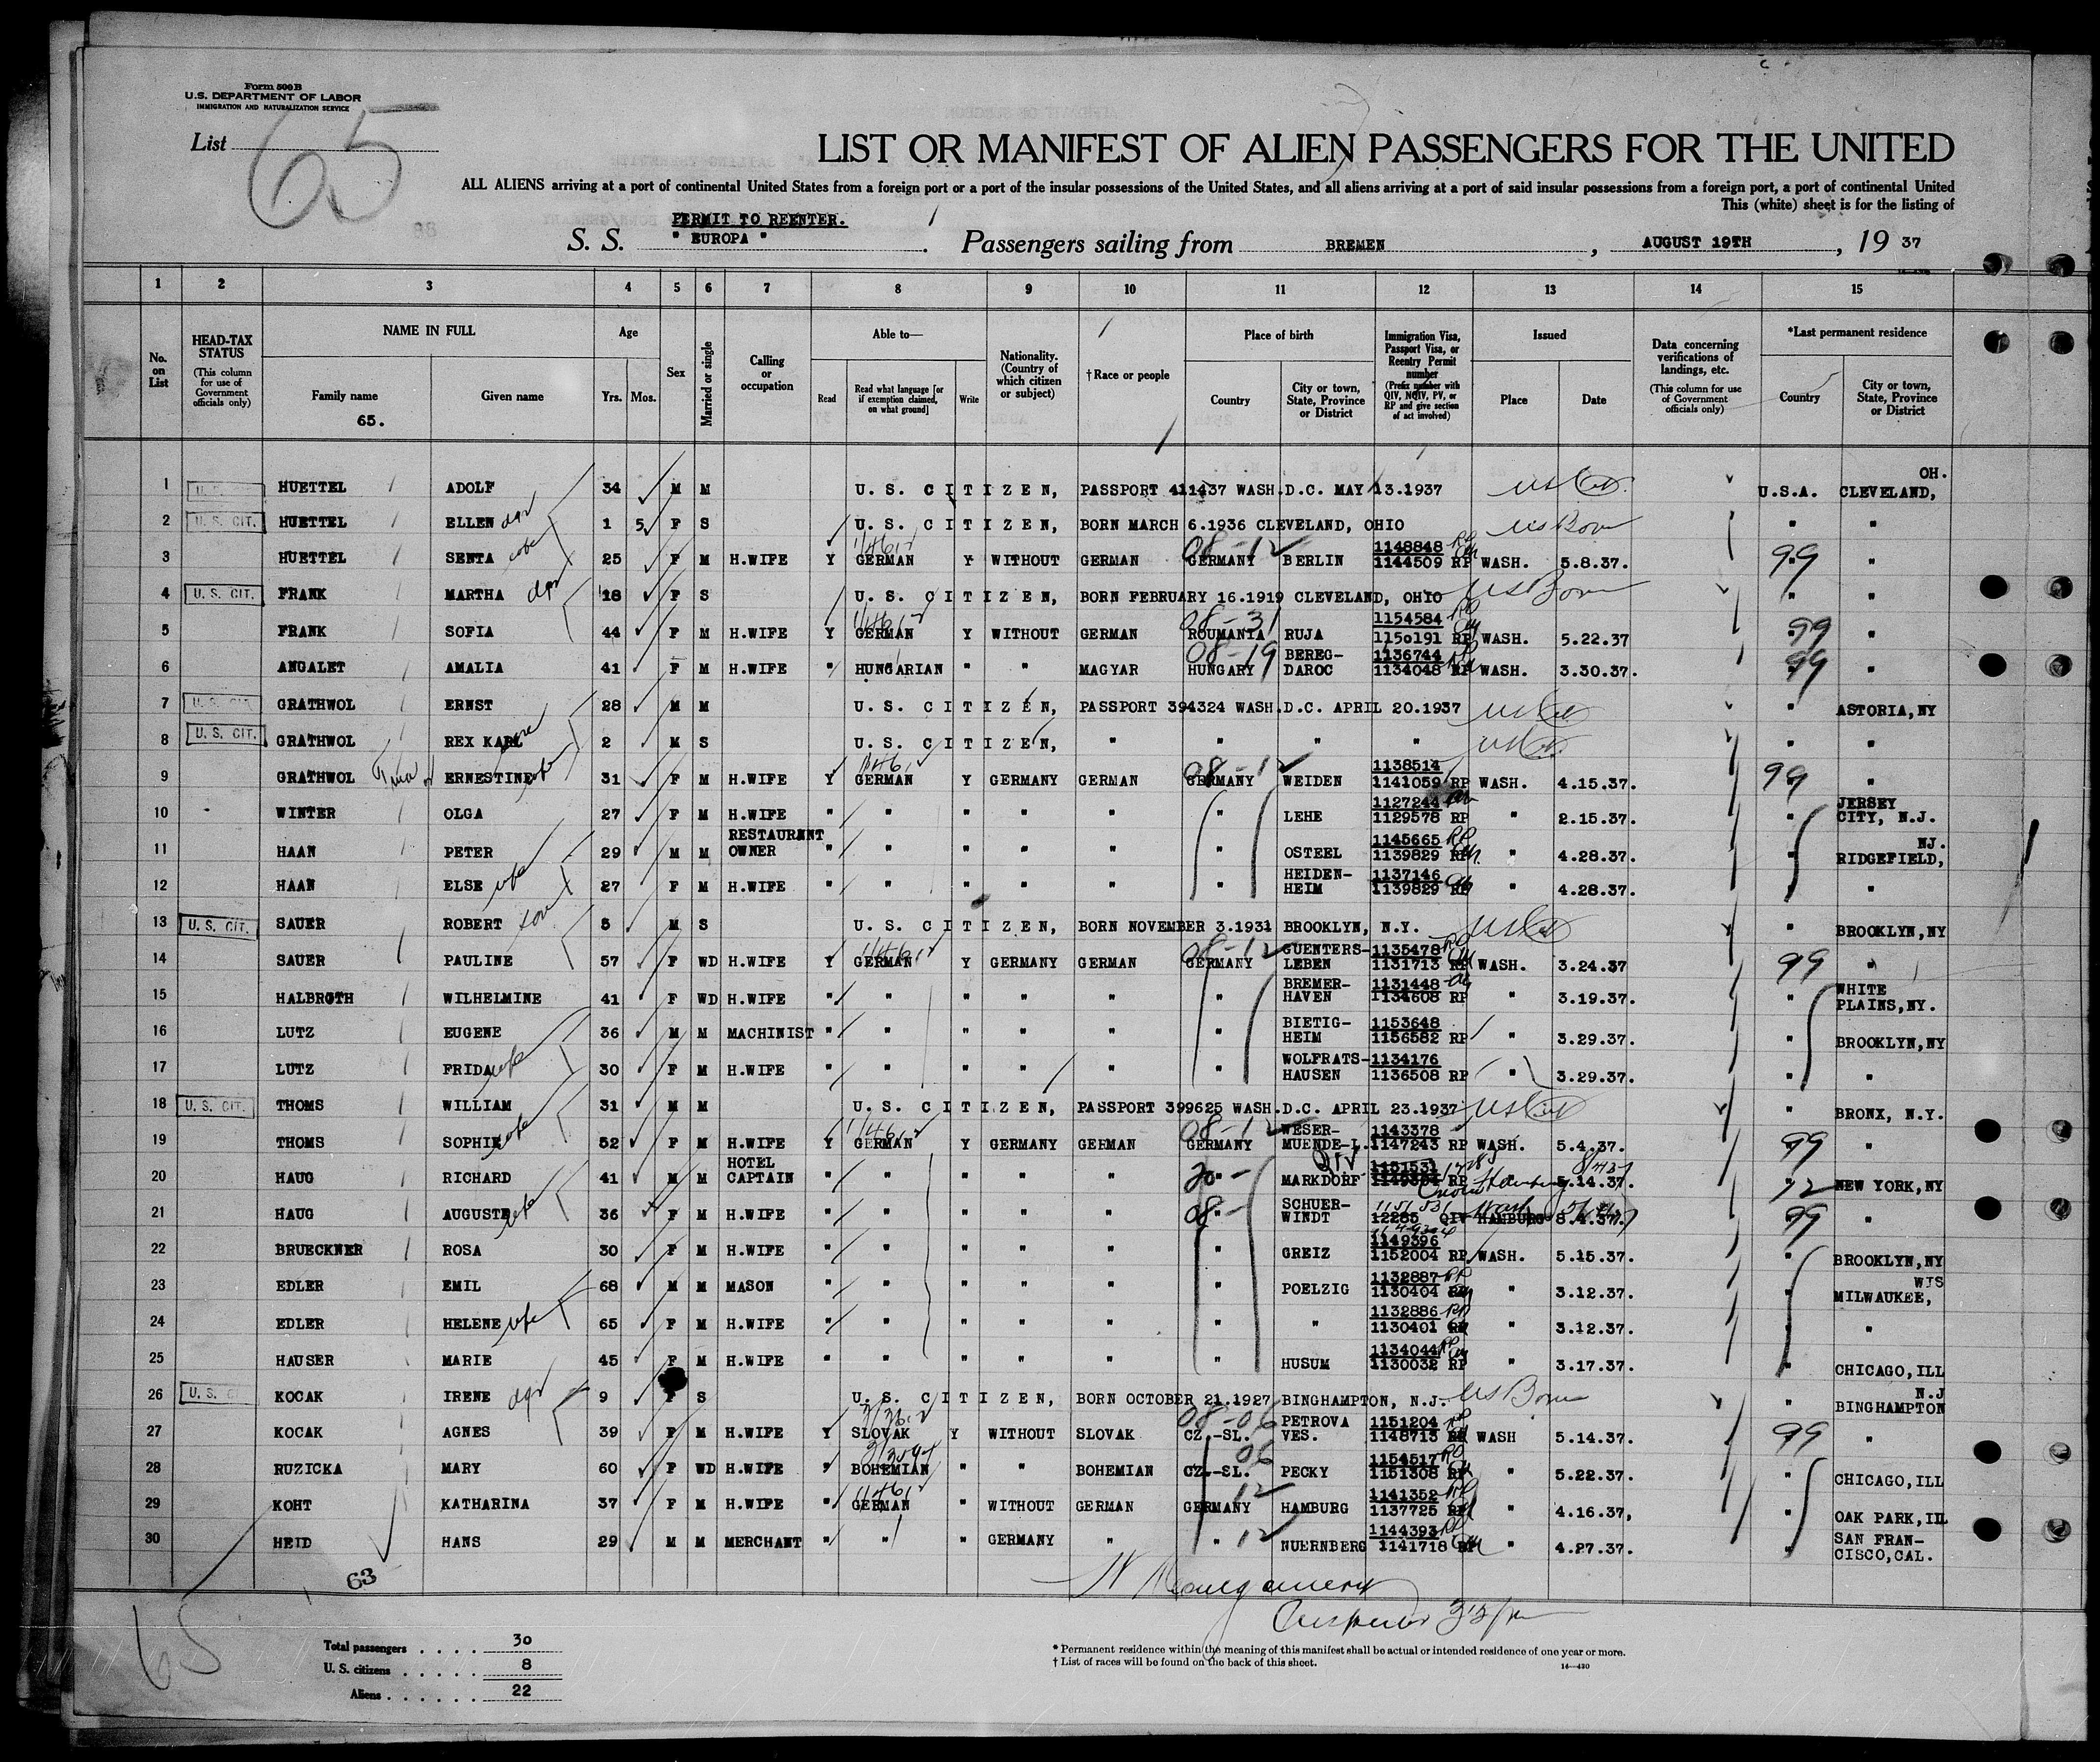 Form 500 B
U.S. DEPARTMENT OF LABOR
IMMIGRATION AND NATURALIZATION SERVICE
List 65
LIST OR MANIFEST OF ALIEN PASSENGERS FOR THE UNITED
ALL ALIENS arriving at a port of continental United States from a foreign port or a port of the insular possessions of the United States, and all aliens arriving at a port of said insular possessions from a foreign port, a port of continental United
This (white) sheet is for the listing of
PERMIT TO REENTER.
S. S. " EUROPA " . Passengers sailing from BREMEN , AUGUST 19TH , 19 37
1 2 3 4 5 6 7 8 9 10 11 12 13 14 15
No. on List
HEAD-TAX STATUS (This column for use of Government officials only)
NAME IN FULL
Family name
65.
Given name
Age
Yrs. Mos.
Sex
Married or single
Calling or occupation
Able to—
Read
Read what language [or if exemption claimed, on what ground]
Write
Nationality. (Country of which citizen or subject)
† Race or people
Place of birth
Country
City or town, State, Province or District
Immigration Visa, Passport Visa, or Reentry Permit number (Prefix number with QIV, NQIV, PV, or RP and give section of act involved)
Issued
Place
Date
Data concerning verifications of landings, etc. (This column for use of Government officials only)
*Last permanent residence
Country
City or town, State, Province or District
1 U.S. HUETTEL ADOLF 34 M M U. S. CITIZEN, PASSPORT 411437 WASH.D.C. MAY 13.1937 U.S.A. OH. CLEVELAND,
2 U. S. CIT. HUETTEL ELLEN dgr 1 5 F S U. S. CITIZEN, BORN MARCH 6.1936 CLEVELAND, OHIO US Born " "
3 HUETTEL SENTA wife 25 F M H.WIFE Y GERMAN Y WITHOUT GERMAN 08-12 GERMANY BERLIN 1148848 1144509 RP WASH. 5.8.37. 99 "
4 U. S. CIT. FRANK MARTHA dgr 18 F S U. S. CITIZEN, BORN FEBRUARY 16.1919 CLEVELAND, OHIO US Born " "
5 FRANK SOFIA 44 F M H.WIFE Y GERMAN Y WITHOUT GERMAN 08-31 ROUMANIA RUJA 1154584 1150191 RP WASH. 5.22.37 99 "
6 ANGALET AMALIA 41 F M H.WIFE " HUNGARIAN " " MAGYAR 08-19 HUNGARY BEREG-DAROC 1136744 1134048 RP WASH. 3.30.37. 99 "
7 U. S. CIT. GRATHWOL ERNST 28 M M U. S. CITIZEN, PASSPORT 394324 WASH.D.C. APRIL 20.1937 US Cit " ASTORIA,NY
8 U. S. CIT. GRATHWOL REX KARL 2 M S U. S. CITIZEN, " " " " US Cit. " "
9 GRATHWOL ERNESTINE wife 31 F M H.WIFE Y GERMAN Y GERMANY GERMAN 08-12 GERMANY WEIDEN 1138514 1141059 RP WASH. 4.15.37. 99 "
10 WINTER OLGA 27 F M H.WIFE " " " " " " LEHE 1127244 1129578 RP " 2.15.37. " JERSEY CITY, N.J.
11 HAAN PETER 29 M M RESTAURANT OWNER " " " " " " OSTEEL 1145665 1139829 RP " 4.28.37. " NJ. RIDGEFIELD,
12 HAAN ELSE wife 27 F M H.WIFE " " " " " " HEIDEN-HEIM 1137146 1139829 RP " 4.28.37. " "
13 U. S. CIT. SAUER ROBERT son 5 M S U. S. CITIZEN, BORN NOVEMBER 3.1931 BROOKLYN, N.Y. US Cit " BROOKLYN,NY
14 SAUER PAULINE 57 F WD H.WIFE Y GERMAN Y GERMANY GERMAN 08-12 GERMANY GUENTERS-LEBEN 1135478 1131713 RP WASH. 3.24.37 99 "
15 HALBROTH WILHELMINE 41 F WD H.WIFE " " " " " " BREMER-HAVEN 1131448 1134608 RP " 3.19.37. " WHITE PLAINS,NY.
16 LUTZ EUGENE 36 M M MACHINIST " " " " " " BIETIG-HEIM 1153648 1156582 RP " 3.29.37. " BROOKLYN,NY
17 LUTZ FRIDA wife 30 F M H.WIFE " " " " " " WOLFRATS-HAUSEN 1134176 1136508 RP " 3.29.37. " "
18 U. S. CIT. THOMS WILLIAM 31 M M U. S. CITIZEN, PASSPORT 399625 WASH.D.C. APRIL 23.1937 US Cit " BRONX, N.Y.
19 THOMS SOPHIE wife 52 F M H.WIFE Y GERMAN Y GERMANY GERMAN 08-12 GERMANY WESER-MUENDE-L. 1143378 1147243 RP WASH. 5.4.37. 99 "
20 HAUG RICHARD 41 M M HOTEL CAPTAIN " " " " " 20- " QIV MARKDORF 1151531 RP 5.14.37. 12 NEW YORK,NY
21 HAUG AUGUSTE wife 36 F M H.WIFE " " " " " 08- " SCHUER-WINDT 1151531 12285 QIV HAMBURG Wash 8.4.37. 99 "
22 BRUECKNER ROSA 30 F M H.WIFE " " " " " " GREIZ 1149396 1152004 RP WASH. 5.15.37. " BROOKLYN,NY
23 EDLER EMIL 68 M M MASON " " " " " " POELZIG 1132887 1130404 RP " 3.12.37. WIS MILWAUKEE,
24 EDLER HELENE wife 65 F M H.WIFE " " " " " " " 1132886 1130401 RP " 3.12.37. "
25 HAUSER MARIE 45 F M H.WIFE " " " " " " HUSUM 1134044 1130032 RP " 3.17.37. " CHICAGO,ILL
26 U. S. KOCAK IRENE dgr 9 F S U. S. CITIZEN, BORN OCTOBER 21.1927 BINGHAMPTON, N.J. US Born " N.J BINGHAMPTON
27 KOCAK AGNES 39 F M H.WIFE Y SLOVAK Y WITHOUT SLOVAK 08-06 CZ.-SL. PETROVA VES. 1151204 1148713 RP WASH 5.14.37. 99 "
28 RUZICKA MARY 60 F WD H.WIFE " BOHEMIAN " " BOHEMIAN 06 CZ.-SL. PECKY 1154517 1151308 RP " 5.22.37. " CHICAGO,ILL
29 KOHT KATHARINA 37 F M H.WIFE " GERMAN " WITHOUT GERMAN 12 GERMANY HAMBURG 1141352 1137725 RP " 4.16.37, " OAK PARK,ILL
30 HEID HANS 29 M M MERCHANT " " " GERMANY " " 12 NUERNBERG 1144393 1141718 RP " 4.27.37. " SAN FRAN-CISCO,CAL.
63
65
Total passengers . . . . . 30
U. S. citizens . . . . . 8
Aliens . . . . . . 22
* Permanent residence within the meaning of this manifest shall be actual or intended residence of one year or more.
† List of races will be found on the back of this sheet.
14—430